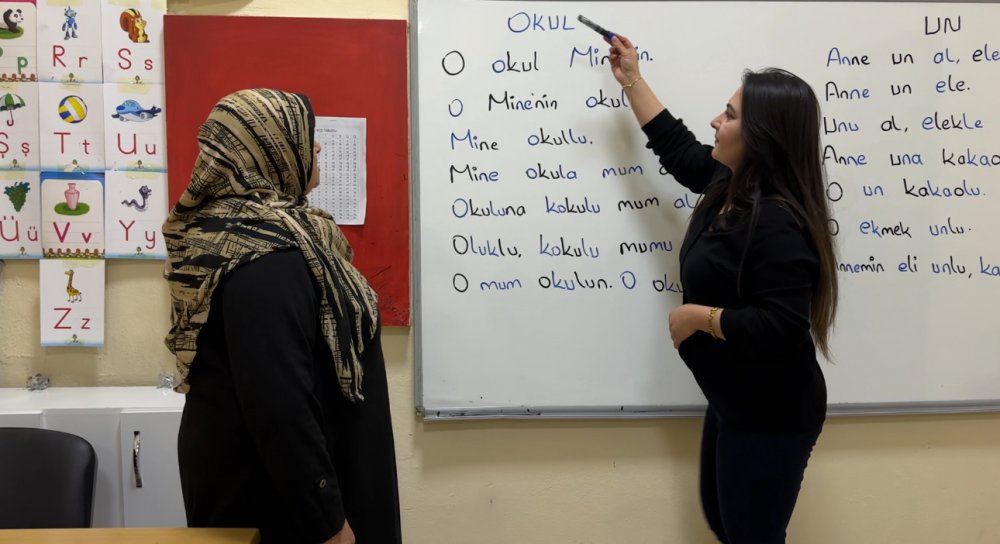 p
R r
S s
Ş ş
T t
U u
Ü ü
V v
Y y
Z z
OKUL
O okul
O Mine'nin okul
Mine okullu.
Mine okula mum
Okuluna kokulu mum al
Oluklu, kokulu mumu
O mum okulun. O
UN
Anne un al, ele
Anne un ele.
Unu al, elekle
Anne una kakao
O un kakaolu.
ekmek unlu.
eli unlu,